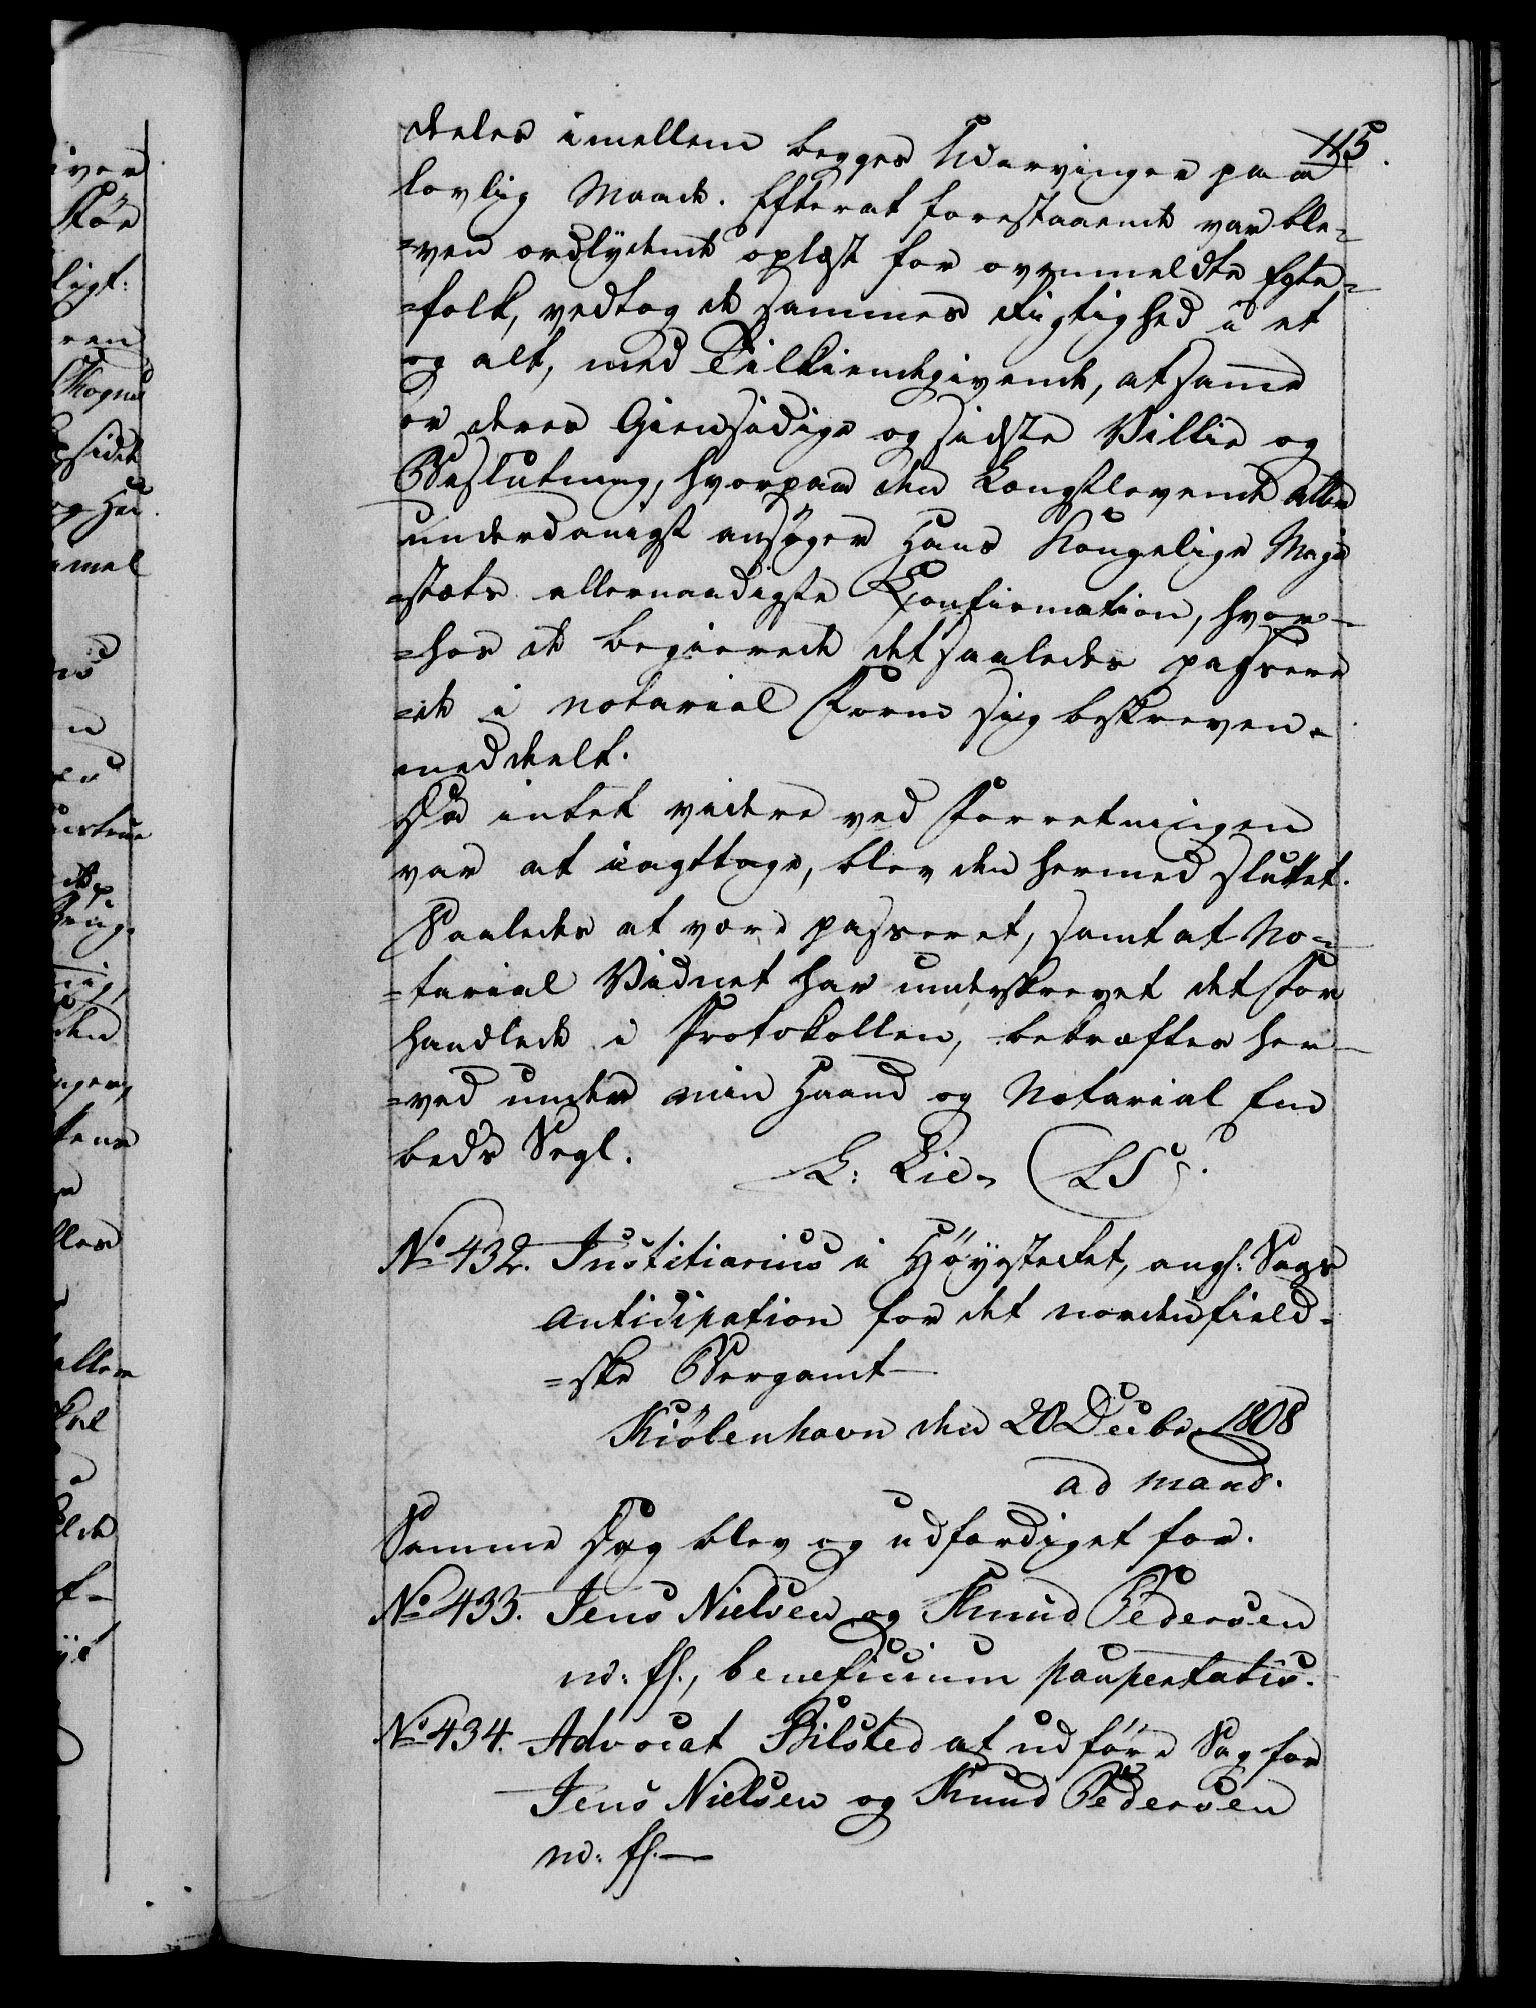 115.
deeles imellem begges Udarvinger paa
lovlig Maade. Efterat forestaaende var ble-
=ven ordlydende oplæst for ovenmeldte Egte-
=folk, vedtog de sammes Rigtighed i et
og alt, med Tilkiendegivende, at samme
er deres Giensidige og sidste Villie og
Beslutning, hvorpaa den Længstlevende aller
underdanigst ansøger Hans Kongelige Maje
=stæts allernaadigste Confirmation, hvor-
=hos de begierede det saaledes passere
=de i notarial Form sig beskreven
meddeelt.
Da intet videre ved Forretningen
var at iagttage, blev den hermed sluttet.
Saaledes at være passeret, samt at No-
=tarial Vidnet har underskrevet det For
handlede i Protokollen, bekræftes her-
=ved under min Haand og Notarial Em
beds Segl.
L: Lie. (LS).
No 432. Justitiarius i Höyesteret, angl. Sags
Anticipation for det nordenfield-
=ske Bergamt
Kiöbenhavn den 20 Decbr. 1808
ad mand.
Samme Dag blev og udfærdiget for.
No 433. Jens Nielsen og Knud Pedersen
m: fl., beneficium paupertatis.
No 434. Advocat Bilsted at udföre Sag for
Jens Nielsen og Knud Pedersen
m: fl.